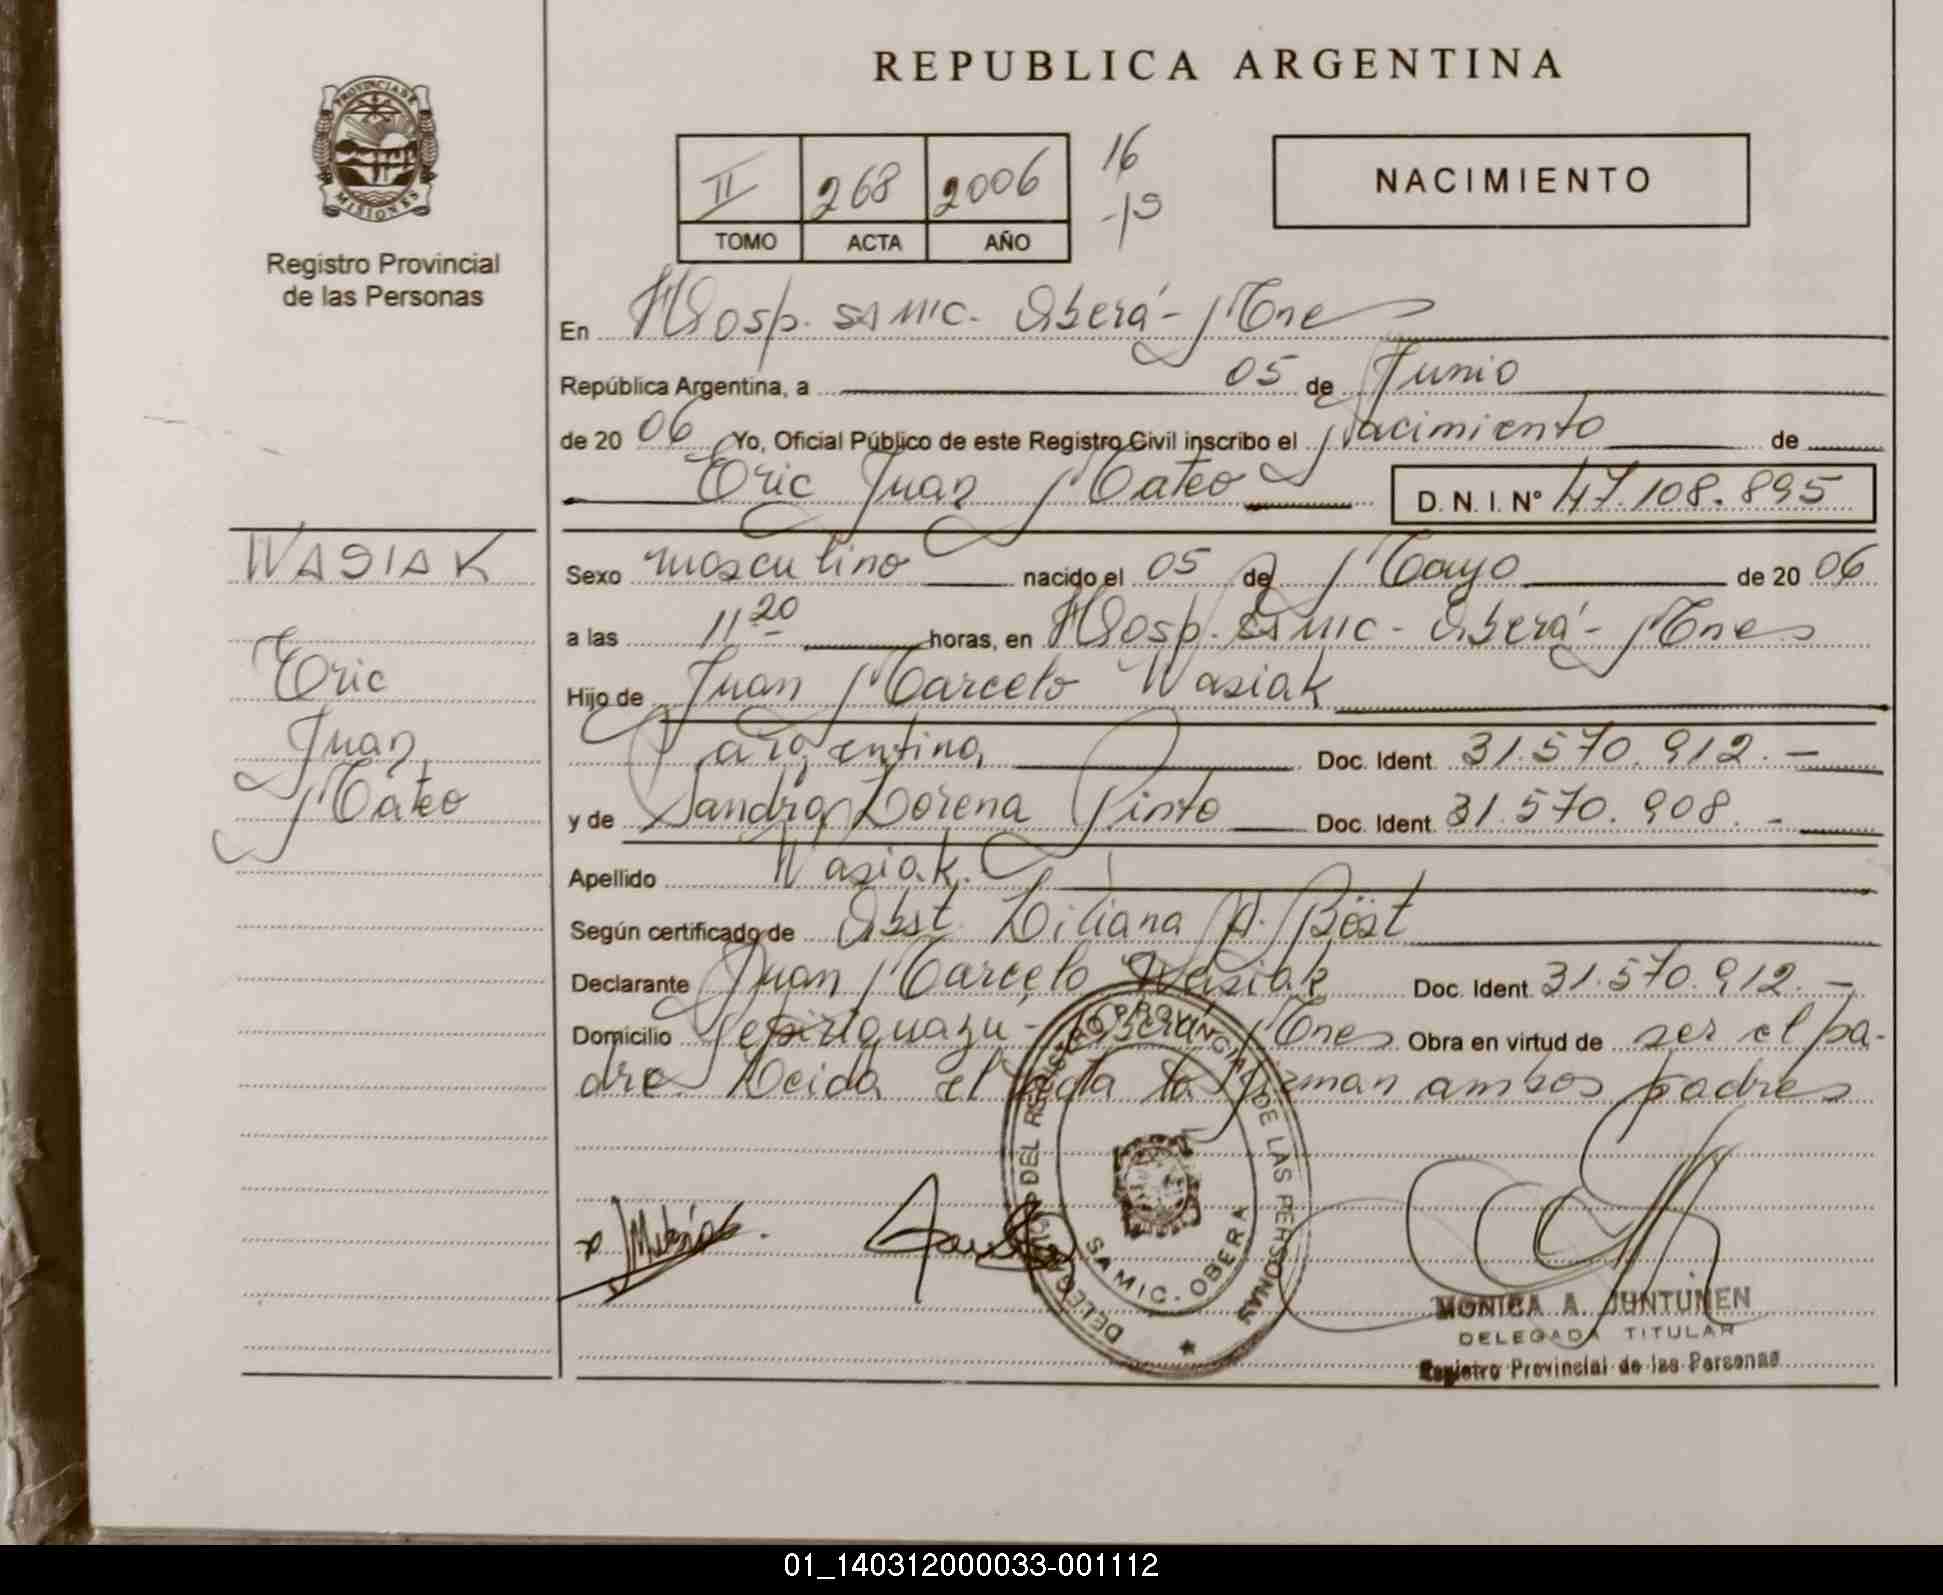 REPUBLICA ARGENTINA
PROVINCIA DE
MISIONES
Registro Provincial
de las Personas
II 268 2006
TOMO ACTA AÑO
16
NACIMIENTO
En Hosp. SAMIC. Oberá - Mnes
República Argentina, a 05 de Junio
de 20 06 Yo, Oficial Público de este Registro Civil inscribo el Nacimiento de
Eric Juan Mateo D. N. I. Nº 47.108.895
WASIAK
Eric
Juan
Mateo
Sexo masculino nacido el 05 de Mayo de 20 06
a las 11 20 horas, en Hosp. SAMIC - Oberá - Mnes
Hijo de Juan Marcelo Wasiak
argentina Doc. Ident. 31.570.912.-
y de Sandra Lorena Pinto Doc. Ident. 31.570.908.-
Apellido Wasiak.
Según certificado de Obst. Liliana A. Böst
Declarante Juan Marcelo Wasiak Doc. Ident. 31.570.912.-
Domicilio Oberá Mnes Obra en virtud de ser el pa-
dre. Leida el Acta la firman ambos padres
DELEGACION DEL REGISTRO PROVINCIAL DE LAS PERSONAS
SAMIC - OBERA
MONICA A. JUNTUNEN
DELEGADA TITULAR
Registro Provincial de las Personas
01_140312000033-001112